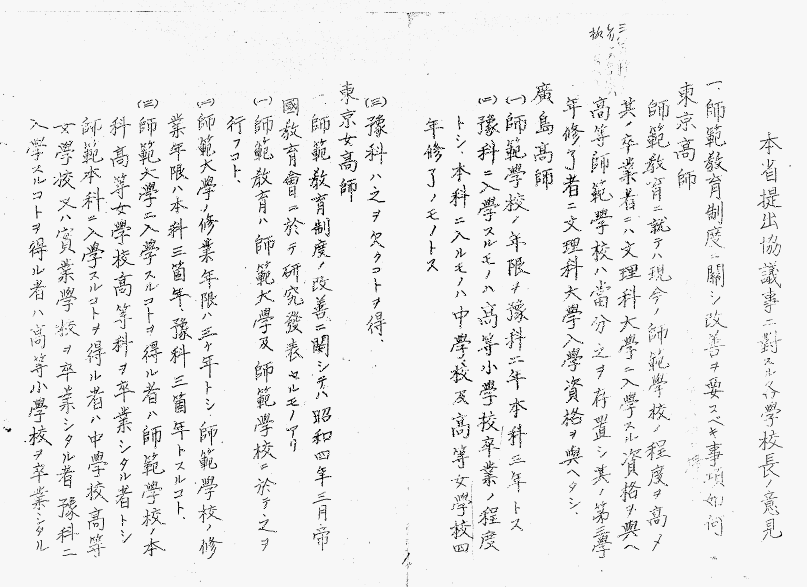 本省提出協議事ニ對スル各學校長ノ意見
一、師範敎育制度ニ關シ改善ヲ要スベキ事項如何
東京高師
師範敎育ニ就テハ現今ノ師範學校ノ程度ヲ高メ
其ノ卒業者ニハ文理科大學ニ入學スル資格ヲ與ヘ
高等師範學校ハ當分之ヲ存置シ其ノ第三學
年修了者ニ文理科大學入學資格ヲ與ヘタシ、
廣島高師
(一)師範學校ノ年限ヲ豫科二年本科三年トス
(二)豫科ニ入學スルモノハ高等小學校卒業ノ程度
トシ、本科ニ入ルモノハ中學校及高等女學校四
年修了ノモノトス
(三)豫科ハ之ヲ欠クコトヲ得、
東京女高師
師範敎育制度ノ改善ニ關シテハ昭和四年三月帝
國敎育會ニ於テ研究發表セルモノアリ
(一)師範敎育ハ師範大學及師範學校ニ於テ之ヲ
行フコト、
(二)師範大學ノ修業年限ハ三ケ年トシ師範學校ノ修
業年限ハ本科三箇年、豫科三箇年トスルコト、
(三)師範大學ニ入學スルコトヲ得ル者ハ師範學校ノ本
科高等女學校高等科ヲ卒業シタル者トシ
師範本科ニ入學スルコトヲ得ル者ハ中學校高等
女學校又ハ實業學校ヲ卒業シタル者豫科ニ
入學スルコトヲ得ル者ハ高等小學校ヲ卒業シタル